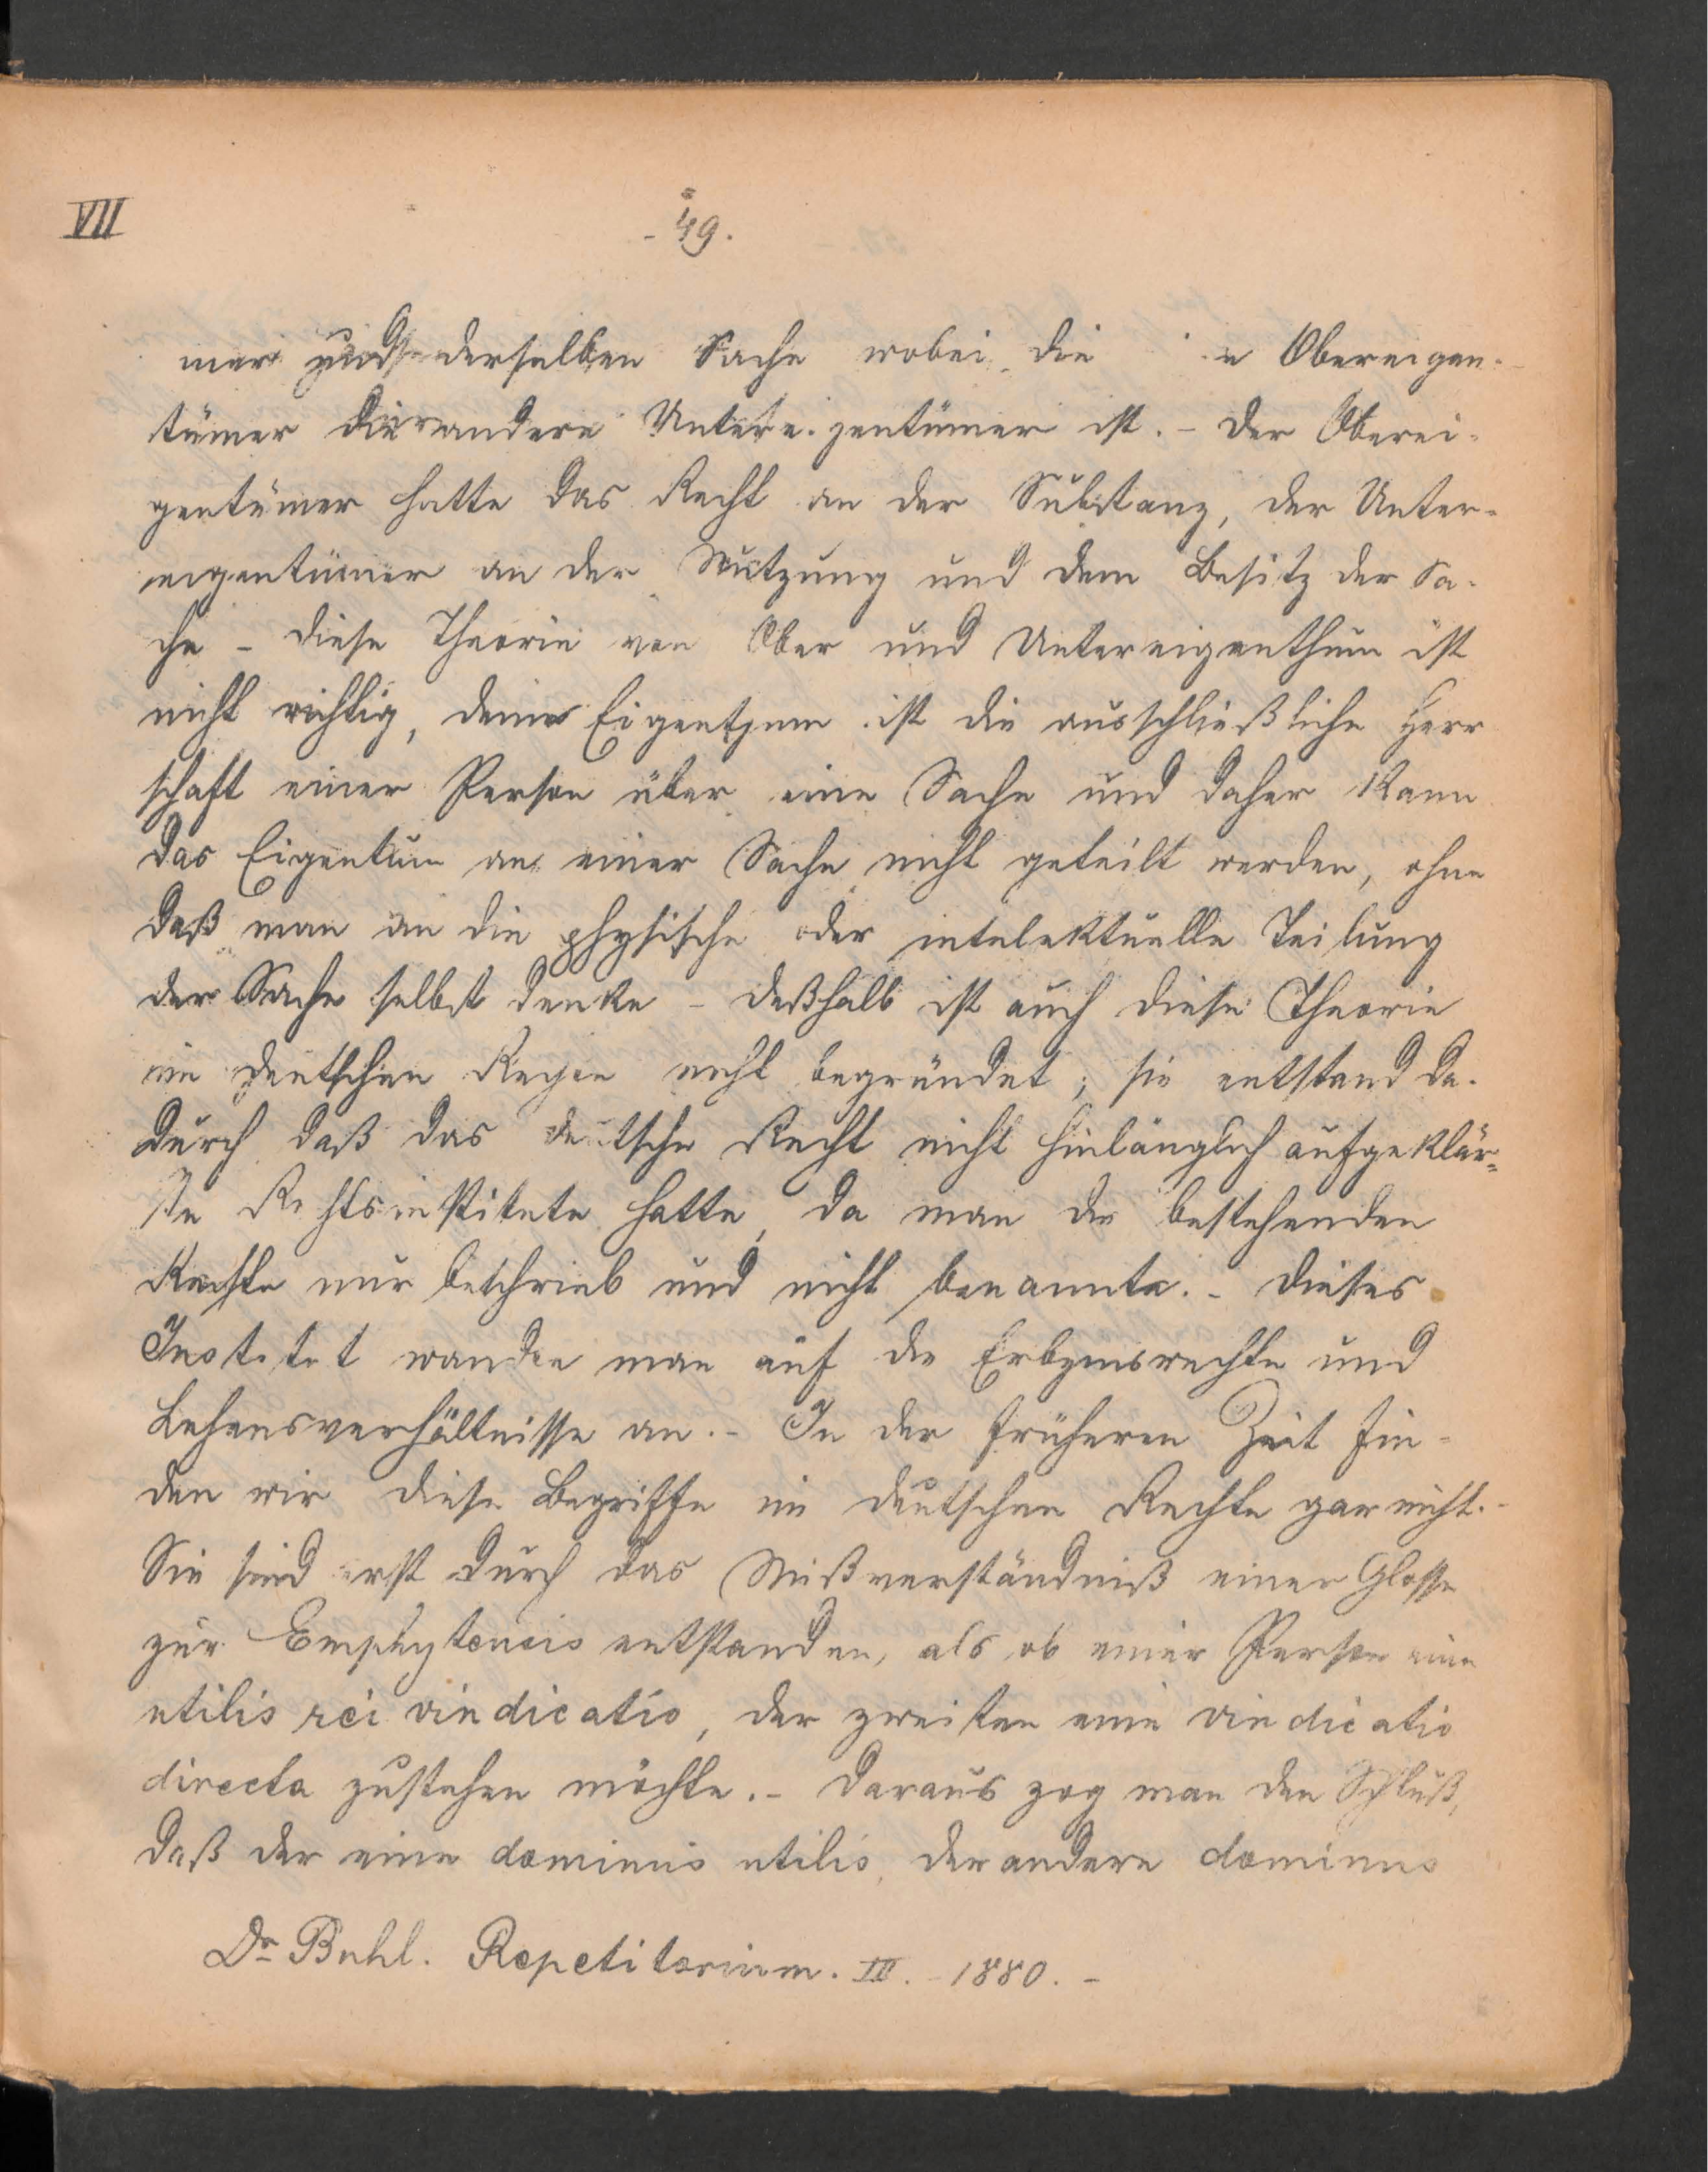 VII
- 49.
mer derselben Sache wobei die Obereigen-
tümer der andere Untereigentümer ist. - Der Oberei-
gentümer hatte das Recht an der Substanz, der Unter-
eigentümer an der Nutzung und dem Besitz der Sa-
che - Diese Theorie von Ober und Untereigenthum ist
nicht richtig, denn Eigentum ist die ausschließliche Herr
schaft einer Person über eine Sache und daher kann
das Eigentum an einer Sache nicht geteilt werden, ohne
daß man an die physische oder intelektuelle Teilung
der Sache selbst denke - deßhalb ist auch diese Theorie
im deutschen nicht begründet; sie entstand da-
durch daß das deutsche Recht nicht hinlänglich aufgeklär-
te Rechtsinstitute hatte, da man die bestehenden
Rechte nur beschrieb und nicht benannte. - Dieses
Institut wandte man auf die Erbzinsrechte und
Lehensverhältnisse an. - In der früheren Zeit fin-
den wir diese Begriffe im deutschen Rechte gar nicht. -
Sie sind erst durch das Mißverständniß einer Glosse
zur Emphyteusis entstanden, als ob einer Person eine
utilis rei vindicatio, der zweiten eine vindicatio
directa zustehen möchte. - Daraus zog man den Schluß,
daß der eine dominus utilis, der andere dominus
Dr Buhl. Repetitorium. III. - 1880. -